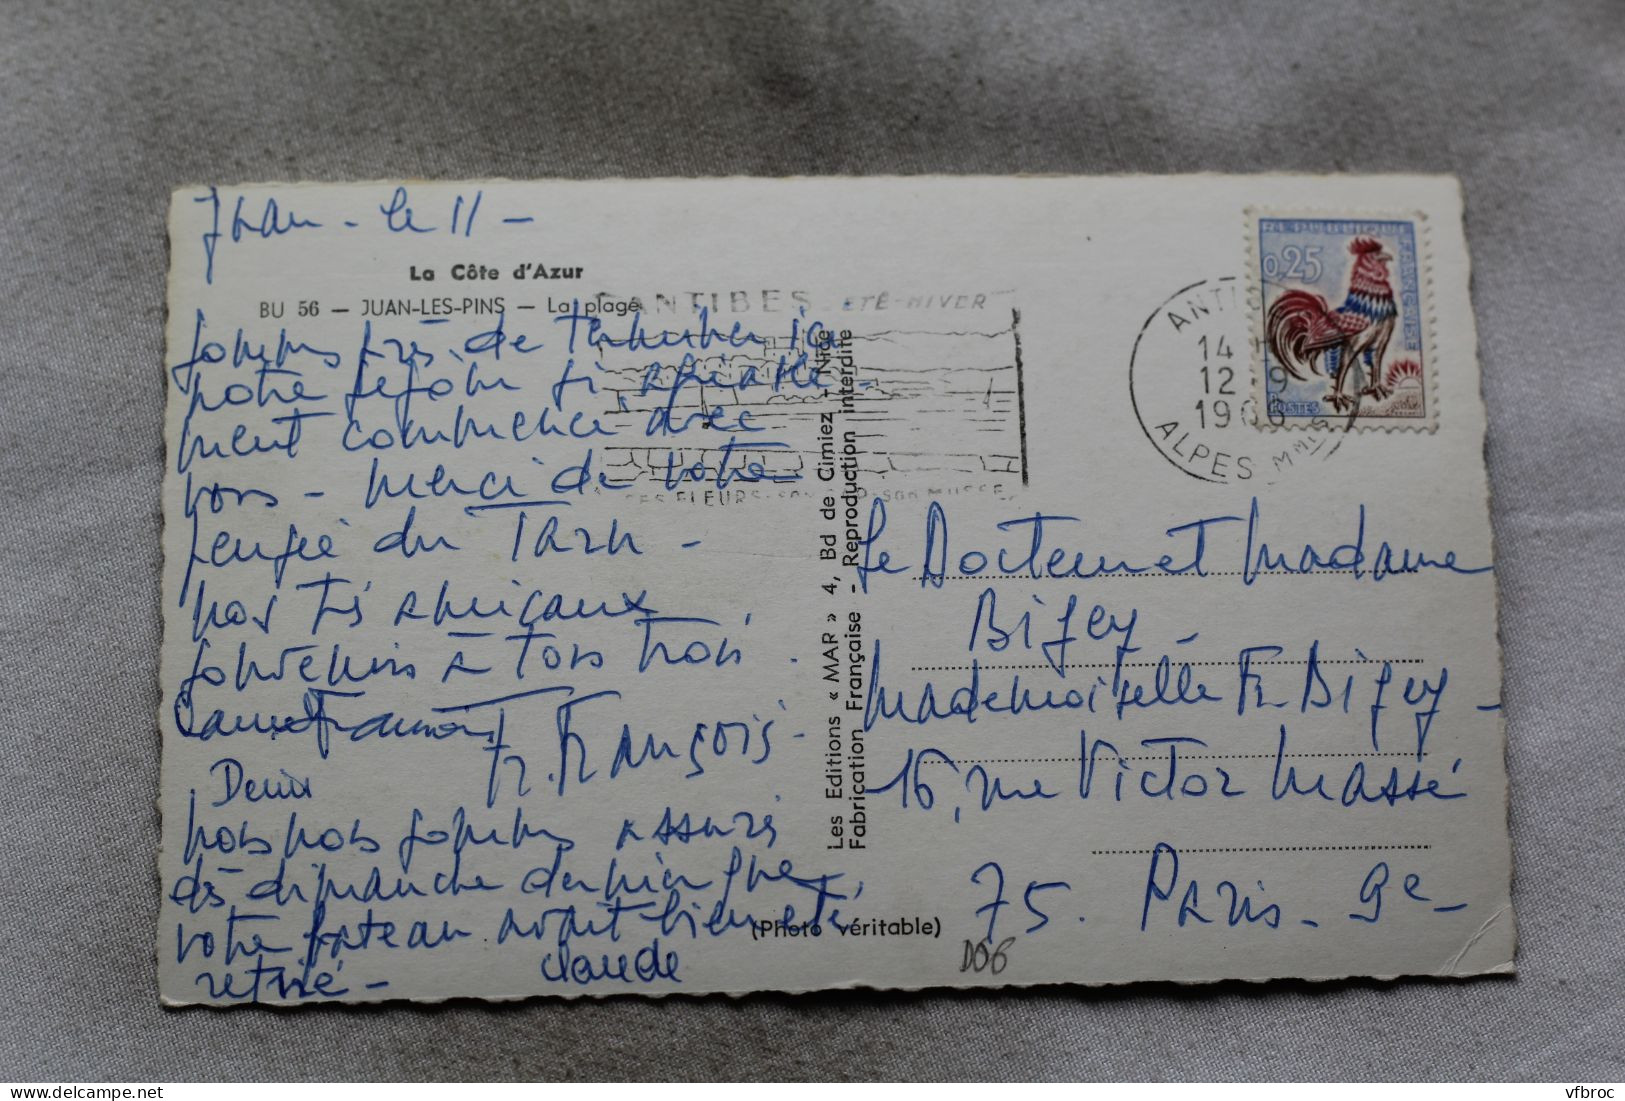 Juan - le 11 -
La Côte d'Azur
BU 56 — JUAN-LES-PINS — La plage
sommes près de terminer ici
notre séjour si agréable-
ment commencé avec
vous - merci de votre
pensée du Tarn -
nos très amicaux
souvenirs à tous trois.
Fr. François -
Denis
nous nous sommes assurés
dès dimanche dernier que
votre bateau avait bien été
retiré - Claude
ANTIBES - ÉTÉ-HIVER
FLEURS
Les Editions « MAR » 4, Bd de Cimiez - Nice
Fabrication Française - Reproduction interdite
(Photo véritable)
0,25
REPUBLIQUE FRANÇAISE
POSTES
ANTI
14
12-9
196
ALPES MMES
Le Docteur et Madame
Bizey -
Mademoiselle Fr. Bizey -
16, rue Victor Massé
75. Paris - 9e -
D06
www.delcampe.net
vfbroc